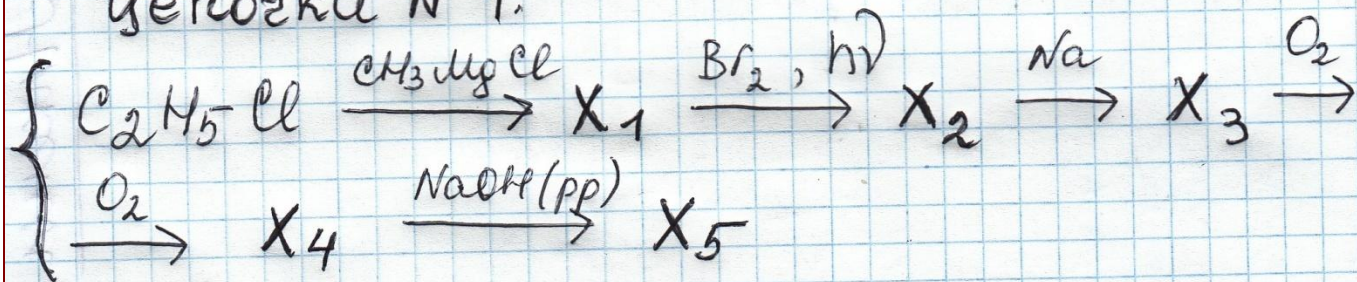 цепочки № 1.
C₂H₅Cl —CH₃MgCl→ X₁ —Br₂, hν→ X₂ —Na→ X₃ —O₂→
—O₂→ X₄ —NaOH(рр)→ X₅